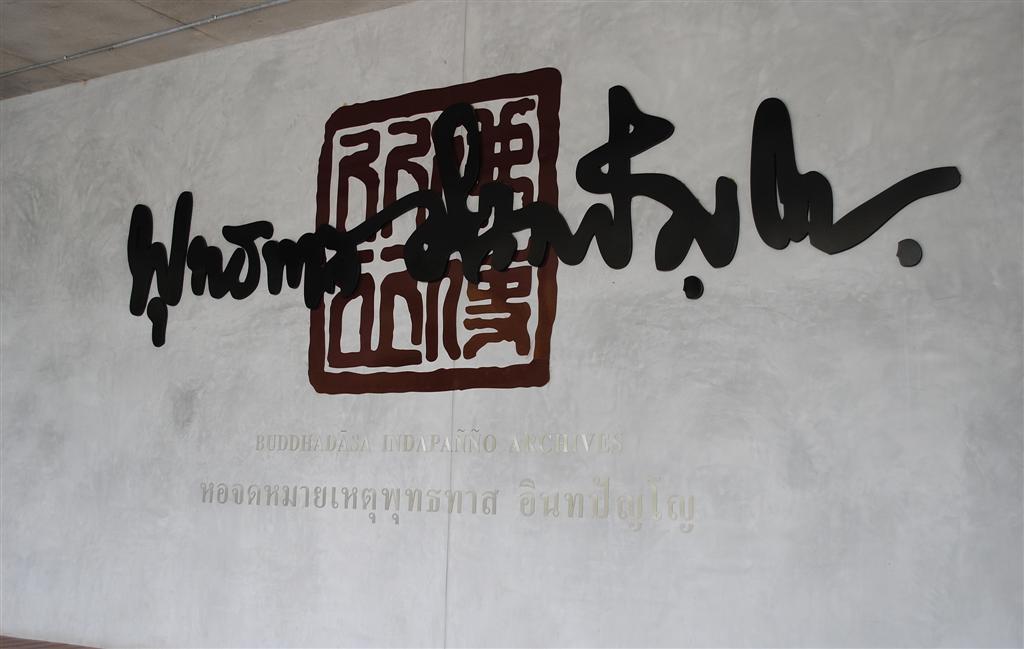 พุทธทาส อินฺทปญฺโญ.
BUDDHADĀSA INDAPAÑÑO ARCHIVES
หอจดหมายเหตุพุทธทาส อินทปัญโญ